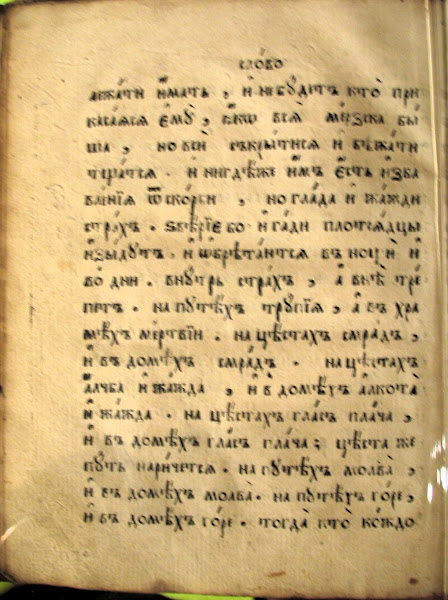 сло́во
лежа́ти и҆́мать , и҆ небꙋ́детъ кто̀ при
каса́ѧсѧ є҆мꙋ̀ , ꙗ҆́кѡ всѧ̀ ме́рзска бы
ша̀ , но всѝ съкры́тисѧ и҆ бѣжа́ти
тща́тсѧ . и҆ нигдѣ́же и҆̀мъ є҆́сть и҆зба
вле́нїѧ ѿ ско́рби , но гла́да и҆ жа́жди
стра́хъ . ѕвѣ́рїе бо и҆ га́ди плотоѧ́дцы
и҆зы́дꙋтъ , и҆ ѡ҆брѣ́таютсѧ въ нощѝ и҆
во днѝ . внꙋ́трь стра́хъ , а҆ внѣ̀ тре́
петъ . на пꙋте́хъ трꙋ́пїѧ , а҆ въ хра́
мѣхъ ме́ртвїи . на цѣ́стахъ смра́дъ ,
и҆ въ домѣ́хъ смра́дъ . на цѣ́стахъ
а҆́лчба и҆ жа́жда , и҆ в домѣ́хъ а҆́лкота
и҆ жа́жда . на цѣ́стахъ гла́съ пла́ча ,
и҆ въ домѣ́хъ гла́съ пла́ча ; цѣ́ста же
пꙋ́ть нарича́етсѧ . на пꙋте́хъ молва̀ ,
и҆ въ домѣ́хъ молва̀ . на пꙋте́хъ го́ре ,
и҆ въ домѣ́хъ го́ре . тогда̀ кто̀ ко́ждо